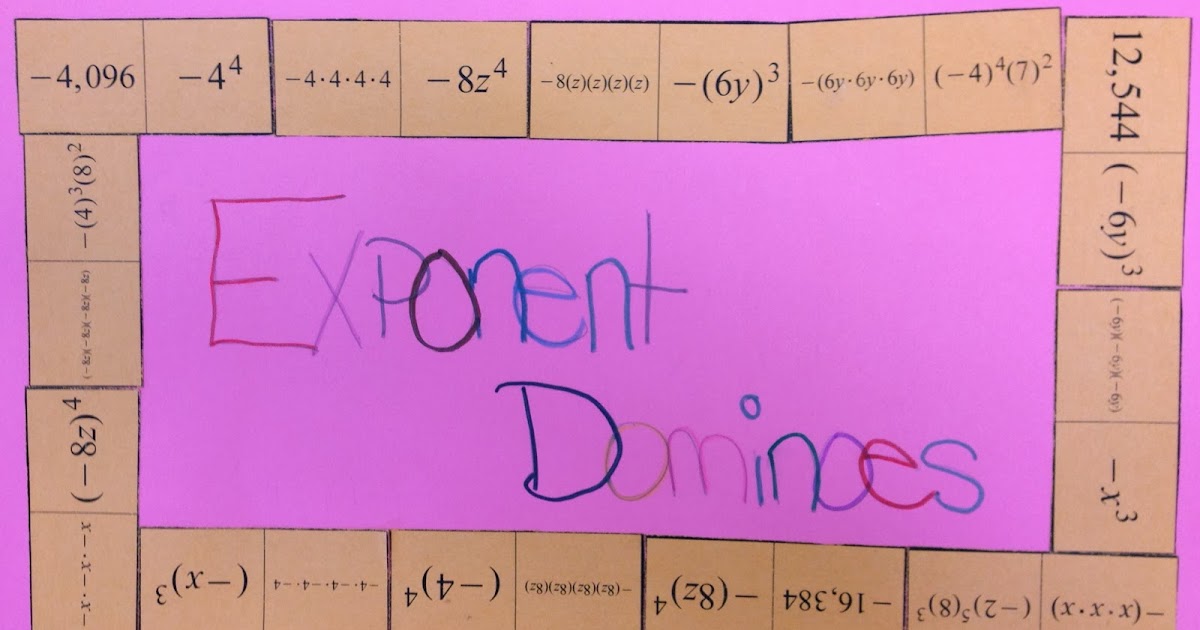 -4,096
-4⁴
-4·4·4·4
-8z⁴
-8(z)(z)(z)(z)
-(6y)³
-(6y·6y·6y)
(-4)⁴(7)²
12,544
(-6y)³
(-6y)(-6y)(-6y)
-x³
-(x·x·x)
(-2)⁵(8)³
-16,384
-(8z)⁴
-(8z)(8z)(8z)(8z)
(-4)⁴
-4·-4·-4·-4
(-x)³
-x·-x·-x
(-8z)⁴
(-8z)(-8z)(-8z)(-8z)
-(4)³(8)²
Exponent
Dominoes